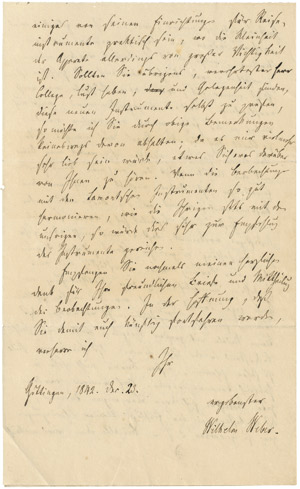 einiges von seinen Einrichtungen für Reise-
instrumente praktisch sein, wo die Kleinheit
der Apparate allerdings von großer Wichtigkeit
ist. Sollten Sie übrigens, verehrtester Herr
College, Lust haben, und Gelegenheit finden,
diese neuen Instrumente selbst zu prüfen,
so möchte ich Sie durch obige Bemerkungen
keineswegs davon abhalten, da es mir vielmehr
sehr lieb sein würde, etwas Sicheres darüber
von Ihnen zu hören. Wenn die Beobachtungen
mit den Lamontschen Instrumenten so gut
harmoniren, wie die Ihrigen stets mit den
unsrigen, so würde dies sehr zur Empfehlung
des Instruments gereichen.
Empfangen Sie nochmals meinen herzlichen
Dank für Ihre freundlichen Briefe und Mittheilung
der Beobachtungen. In der Hoffnung, daß
Sie damit auch künftig fortfahren werden,
verharre ich
Ihr
Göttingen, 1842. Dec. 23.
ergebenster
Wilhelm Weber.